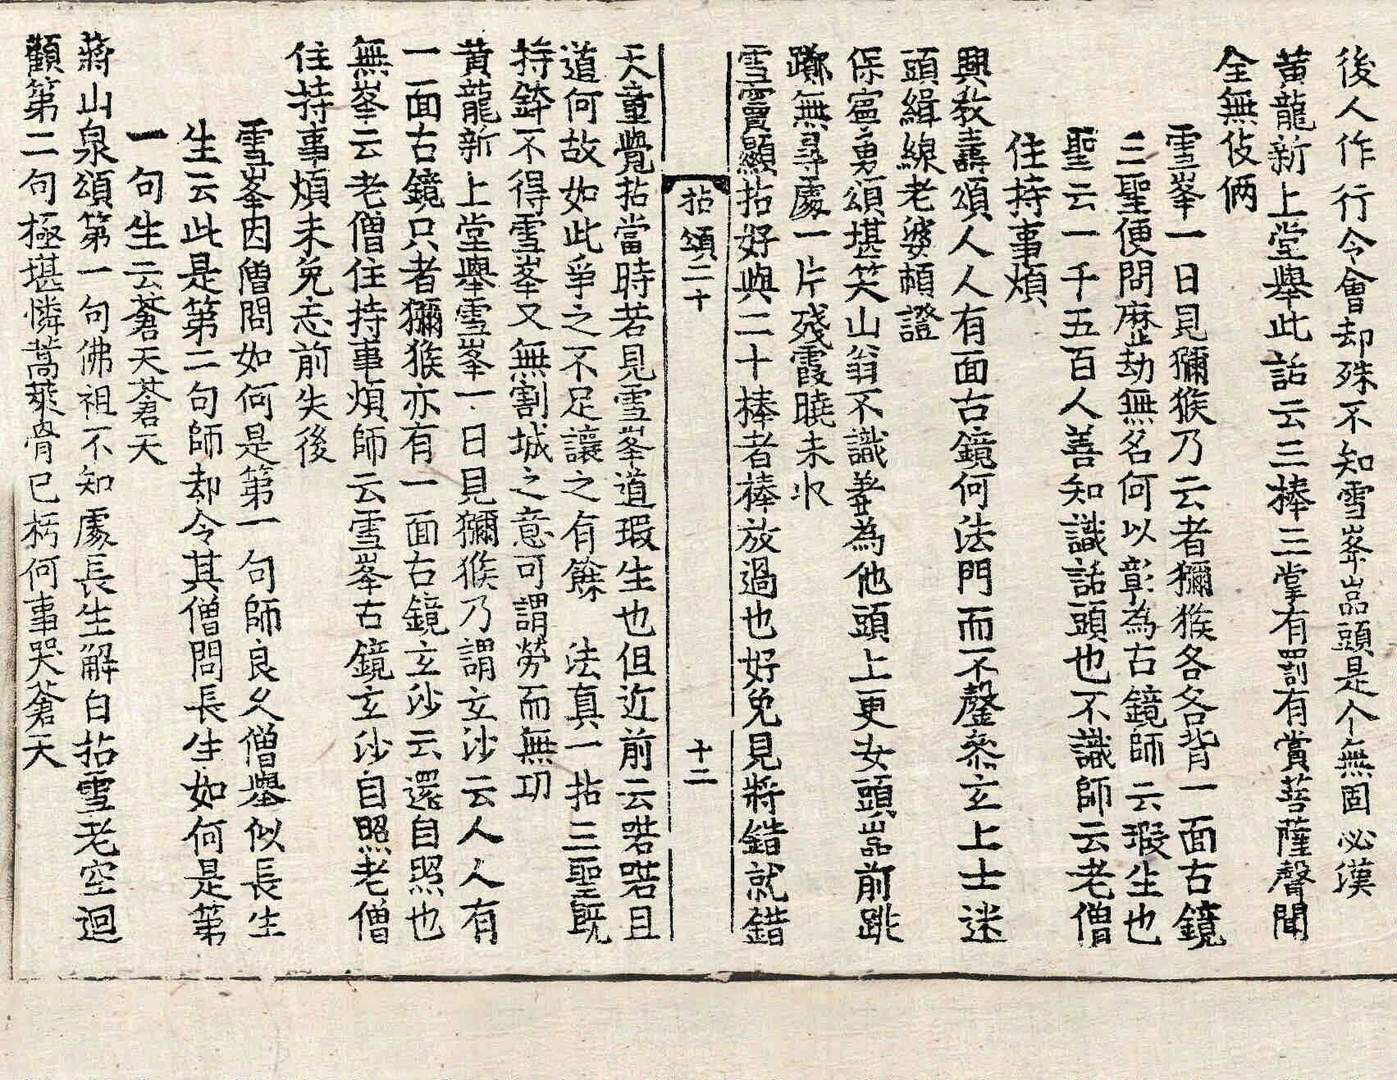 後人作行令會却殊不知雪峯嵓頭是个無固必漢
黃龍新上堂舉此話云三棒三掌有罰有賞菩薩聲聞
全無伎倆
雪峯一日見獼猴乃云者獼猴各各背一面古鏡
三聖便問歷劫無名何以彰為古鏡師云瑕生也
聖云一千五百人善知識話頭也不識師云老僧
住持事煩
興教壽頌人人有面古鏡何法門而不罄叅玄上士迷
頭緝線老婆頓證
保寧勇頌堪笑山翁不識羞為他頭上更安頭嵓前跳
躑無尋處一片殘霞曉未收
雪竇顯拈好與二十棒者棒放過也好免見將錯就錯
拈頌二十
十二
天童覺拈當時若見雪峯道瑕生也但近前云喏喏且
道何故如此爭之不足讓之有餘 法真一拈三聖既
持鋒不得雪峯又無割城之意可謂勞而無功
黃龍新上堂舉雪峯一日見獼猴乃謂玄沙云人人有
一面古鏡只者獼猴亦有一面古鏡玄沙云還自照也
無峯云老僧住持事煩師云雪峯古鏡玄沙自照老僧
住持事煩未免忘前失後
雪峯因僧問如何是第一句師良久僧舉似長生
生云此是第二句師却令其僧問長生如何是第
一句生云蒼天蒼天
蔣山泉頌第一句佛祖不知處長生解白拈雪老空迴
顧第二句極堪憐蒿萊骨已朽何事哭蒼天